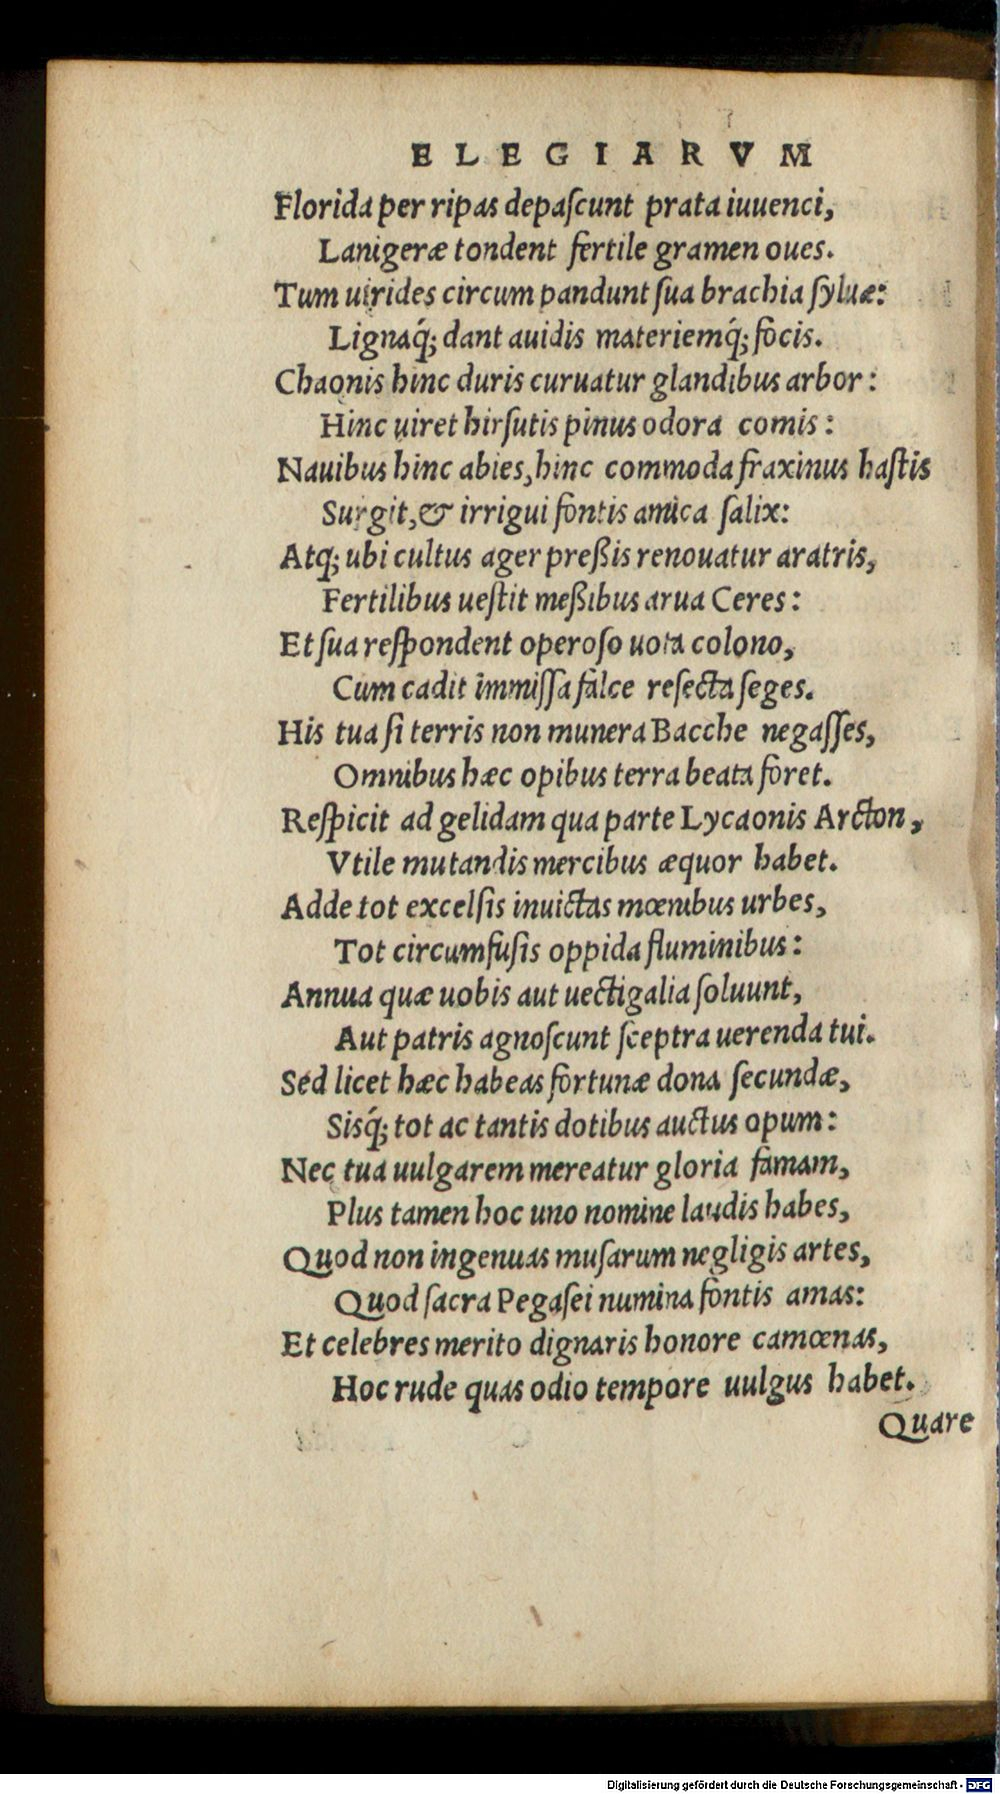 ELEGIARVM
Florida per ripas depaſcunt prata iuuenci,
Lanigeræ tondent fertile gramen oues.
Tum uirides circum pandunt ſua brachia ſyluæ:
Lignaq́; dant auidis materiemq́; focis.
Chaonis hinc duris curuatur glandibus arbor:
Hinc uiret hirſutis pinus odora comis:
Nauibus hinc abies, hinc commoda fraxinus haſtis
Surgit, & irrigui fontis amica ſalix:
Atq; ubi cultus ager preßis renouatur aratris,
Fertilibus ueſtit meßibus arua Ceres:
Et ſua reſpondent operoſo uota colono,
Cum cadit immiſſa falce reſecta ſeges.
His tua ſi terris non munera Bacche negaſſes,
Omnibus hæc opibus terra beata foret.
Reſpicit ad gelidam qua parte Lycaonis Arcton,
Vtile mutandis mercibus æquor habet.
Adde tot excelſis inuictas mœnibus urbes,
Tot circumfuſis oppida fluminibus:
Annua quæ uobis aut uectigalia ſoluunt,
Aut patris agnoſcunt ſceptra uerenda tui.
Sed licet hæc habeas fortunæ dona ſecundæ,
Sisq́; tot ac tantis dotibus auctus opum:
Nec tua uulgarem mereatur gloria famam,
Plus tamen hoc uno nomine laudis habes,
Quod non ingenuas muſarum negligis artes,
Quod ſacra Pegaſei numina fontis amas:
Et celebres merito dignaris honore camœnas,
Hoc rude quas odio tempore uulgus habet.
Quare
Digitalisierung gefördert durch die Deutsche Forschungsgemeinschaft - DFG